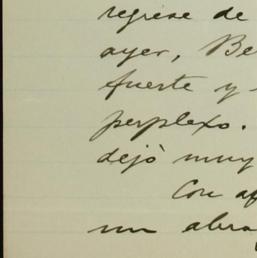 regrese de
ayer, Be
fuerte y
perplexo.
dejò muy
Con af
un abra